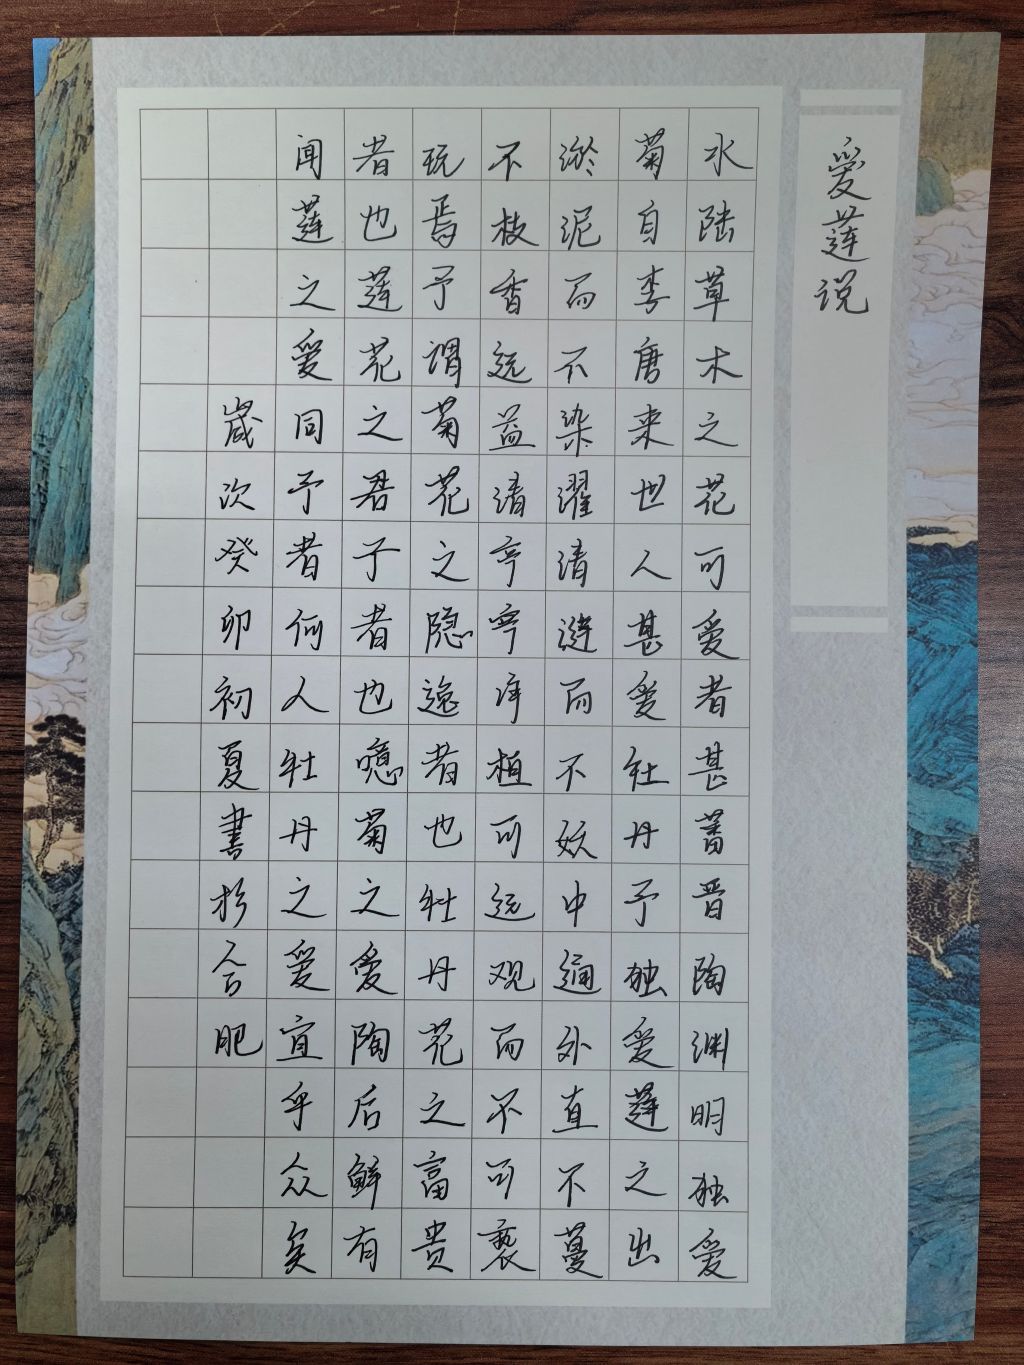 爱莲说
水陆草木之花可爱者甚蕃晋陶渊明独爱
菊自李唐来世人甚爱牡丹予独爱莲之出
淤泥而不染濯清涟而不妖中通外直不蔓
不枝香远益清亭亭净植可远观而不可亵
玩焉予谓菊花之隐逸者也牡丹花之富贵
者也莲花之君子者也噫菊之爱陶后鲜有
闻莲之爱同予者何人牡丹之爱宜乎众矣
歲次癸卯初夏書於合肥